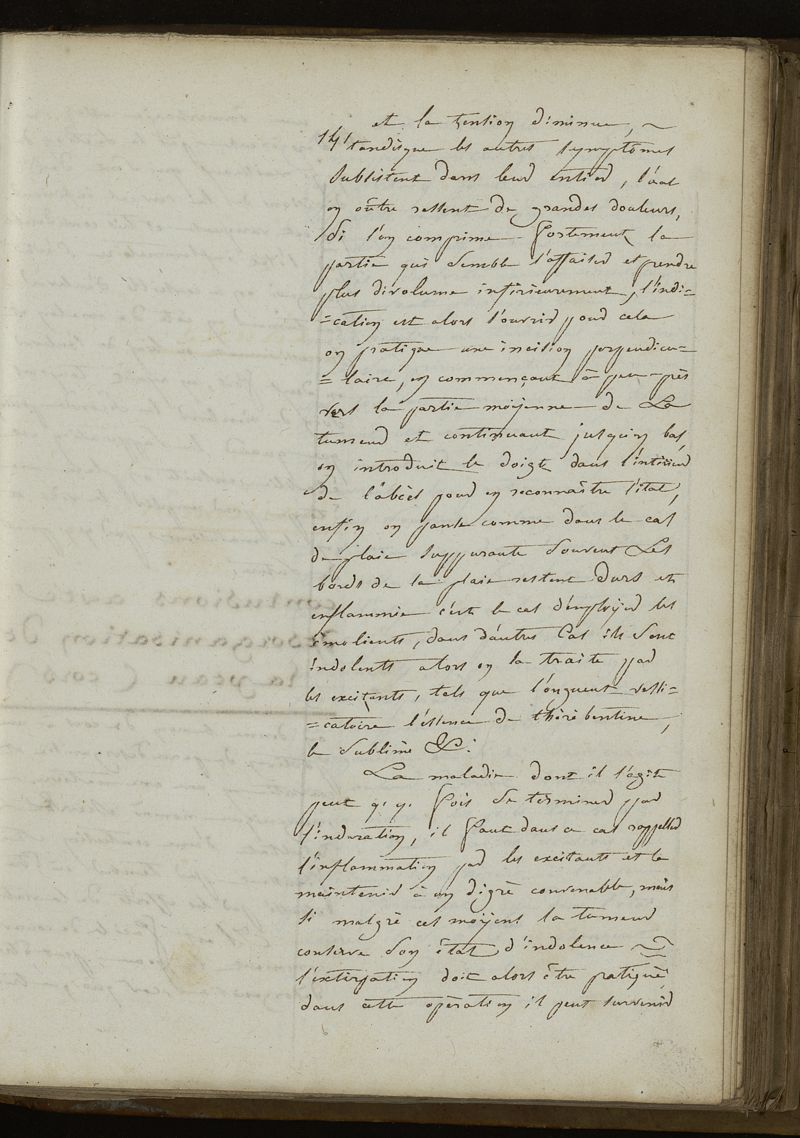 et la tention diminue, ~
141 tandisque les autres symptômes
subsistent dans leur entier, l'on
en outre ressent de grandes douleurs,
Si l'on comprime fortement la
partie qui semble s'affaiser et prendre
plus divolume inférieurement, l'indi=
=cation est alors l'ouvrir pour cela
on pratique une incision perpendicu=
=laire, en commençant à peu-près
vers la partie moÿenne de La
tumeur et continuant jusqu'en bas,
on introduit le doigt dans l'intérieur
de l'abcès pour en reconnaître l'état,
enfin on panse comme dans le cas
de plaie suppurante Souvent Les
bords de la plaie restent durs et
enflammée c'est le cas d'emploÿer les
émolients, dans dautres Cas ils sont
indolents alors on la traite par
les excitants, tels que l'onguent vessi=
=catoire l'éssence de thérébentine,
le sublimé &:
La maladie dont il s'agit
peut q.q. fois se terminer par
l'induration, il faut dans ce cas rappeller
l'inflammation par les excitants et la
maintenir à un dégrè convenable, mais
Si malgrè cet moÿens la tumeur
conserve son ètat d'indolence ~
l'extirpation doit alors être pratiqué
dans cette opèration il peut survenir